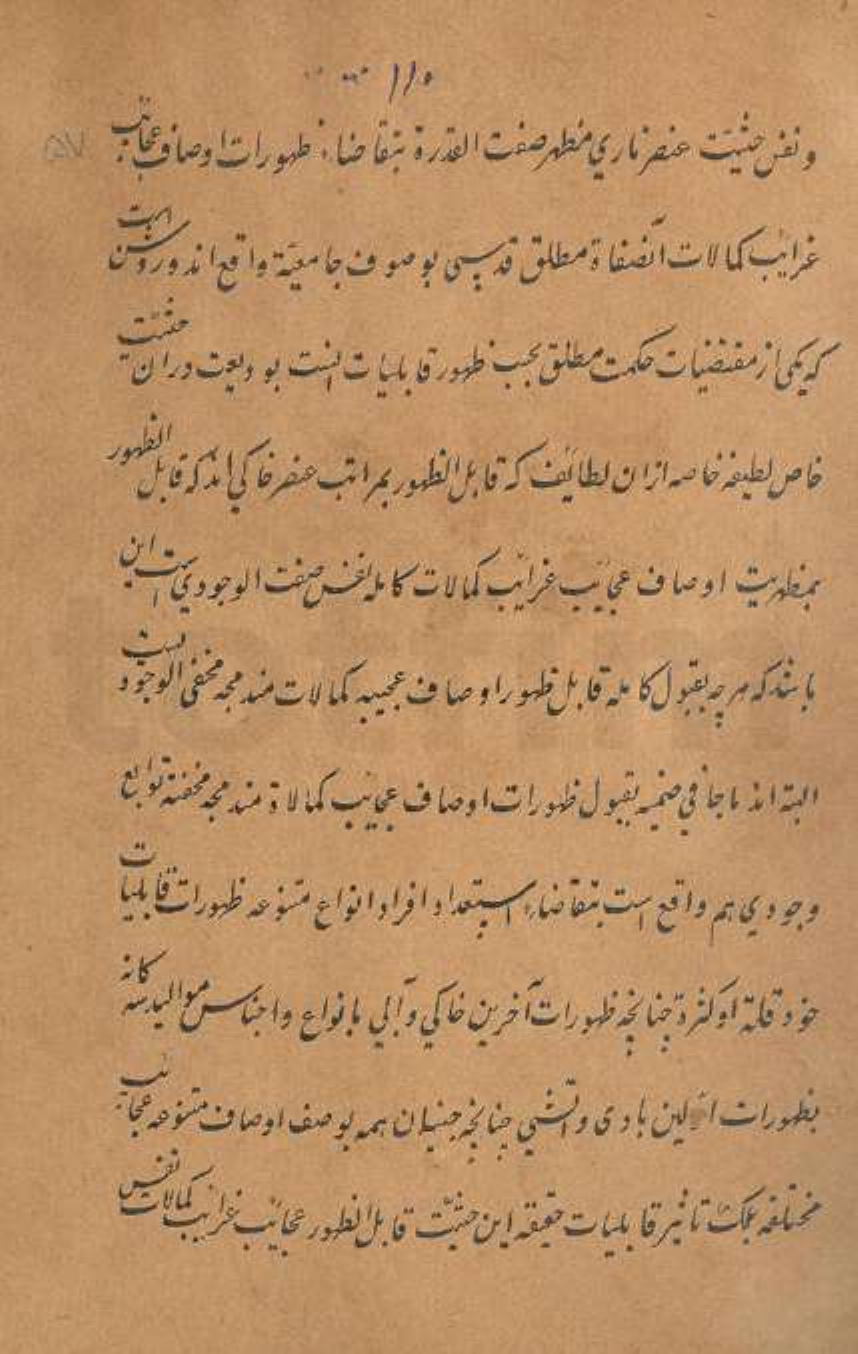 ۱۱۵
۵۷
و نفس حیثیت عنصر ناری مظهر صفت القدرة بتقاضاء ظهورات اوصاف عجائب
غرائب کمالات آنصفاة مطلق قدسی بوصوف جامعیّة واقع اند و روشن است
که یکی از مقتضیات حکمت مطلق بحسب ظهور قابلیات اینست بودیعت دران حیثیت
خاص لطیفه خاصه ازان لطائف که قابل الظهور بمراتب عنصر خاکی اند که قابل الظهور
بمظهریت اوصاف عجائب غرائب کمالات کامله نفس صفت الوجودیست این
باشد که هرچه بقبول کامله قابل ظهور اوصاف عجیبه کمالات مندمجه مخفی الوجود
البته اند بقبول ظهورات اوصاف عجائب کمالاة مندمجه مخفیة توابع
وجودی هم واقع است بتقاضاء استعداد افراد انواع متنوعه ظهورات قابلیات
خود قلة او کثرة چنانچه ظهورات آخرین خاکی و آبی بانواع و اجناس موالید سه کانه
بظهورات اولین بادی و آتشی چنانچه جنیان همه بوصف اوصاف متنوعه عجائب
مختلفه تاثیر قابلیات حقیقه این حیثیّت قابل الظهور عجائب غرائب کمالات نفس